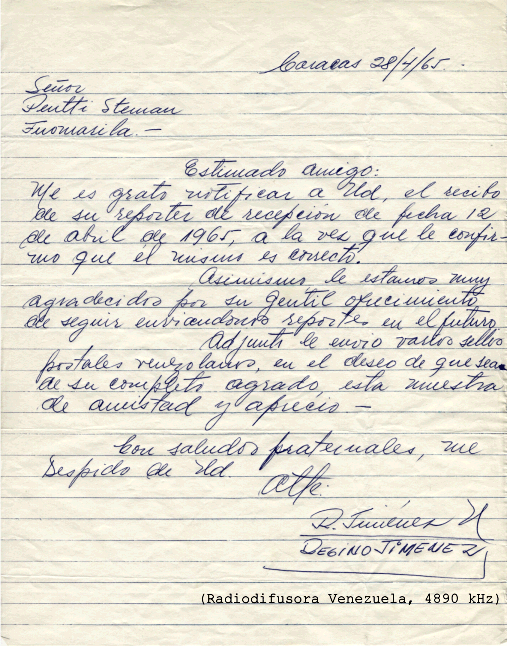 Caracas 28/4/65.-
Señor
Pentti Steman
Fuomarila.-
Estimado amigo:
Me es grato notificar a Ud, el recibo
de su reporter de recepción de fecha 12
de abril de 1965, a la vez que le confir-
mo que el mismo es correcto.
Asimismo le estamos muy
agradecidos por su gentil ofrecimiento
de seguir enviandonos reportes en el futuro
Adjunto le envio varios sellos
postales venezolanos, en el deseo de que sean
de su completo agrado, esta muestra
de amistad y aprecio.-
Con saludos fraternales, me
despido de Ud.
Atte.
R. Jiménez
JIMENEZ
(Radiodifusora Venezuela, 4890 kHz)